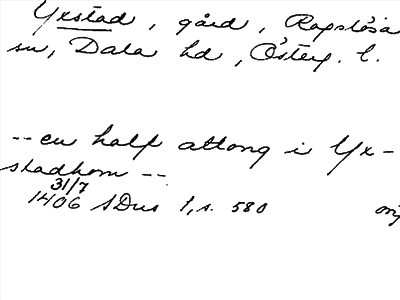 Yxstad, gård, Rogslösa
sn, Dala hd, Östeg. l.
-- en half attong i Yx-
stadhom --
31/7
1406 SDns 1, s. 580 or